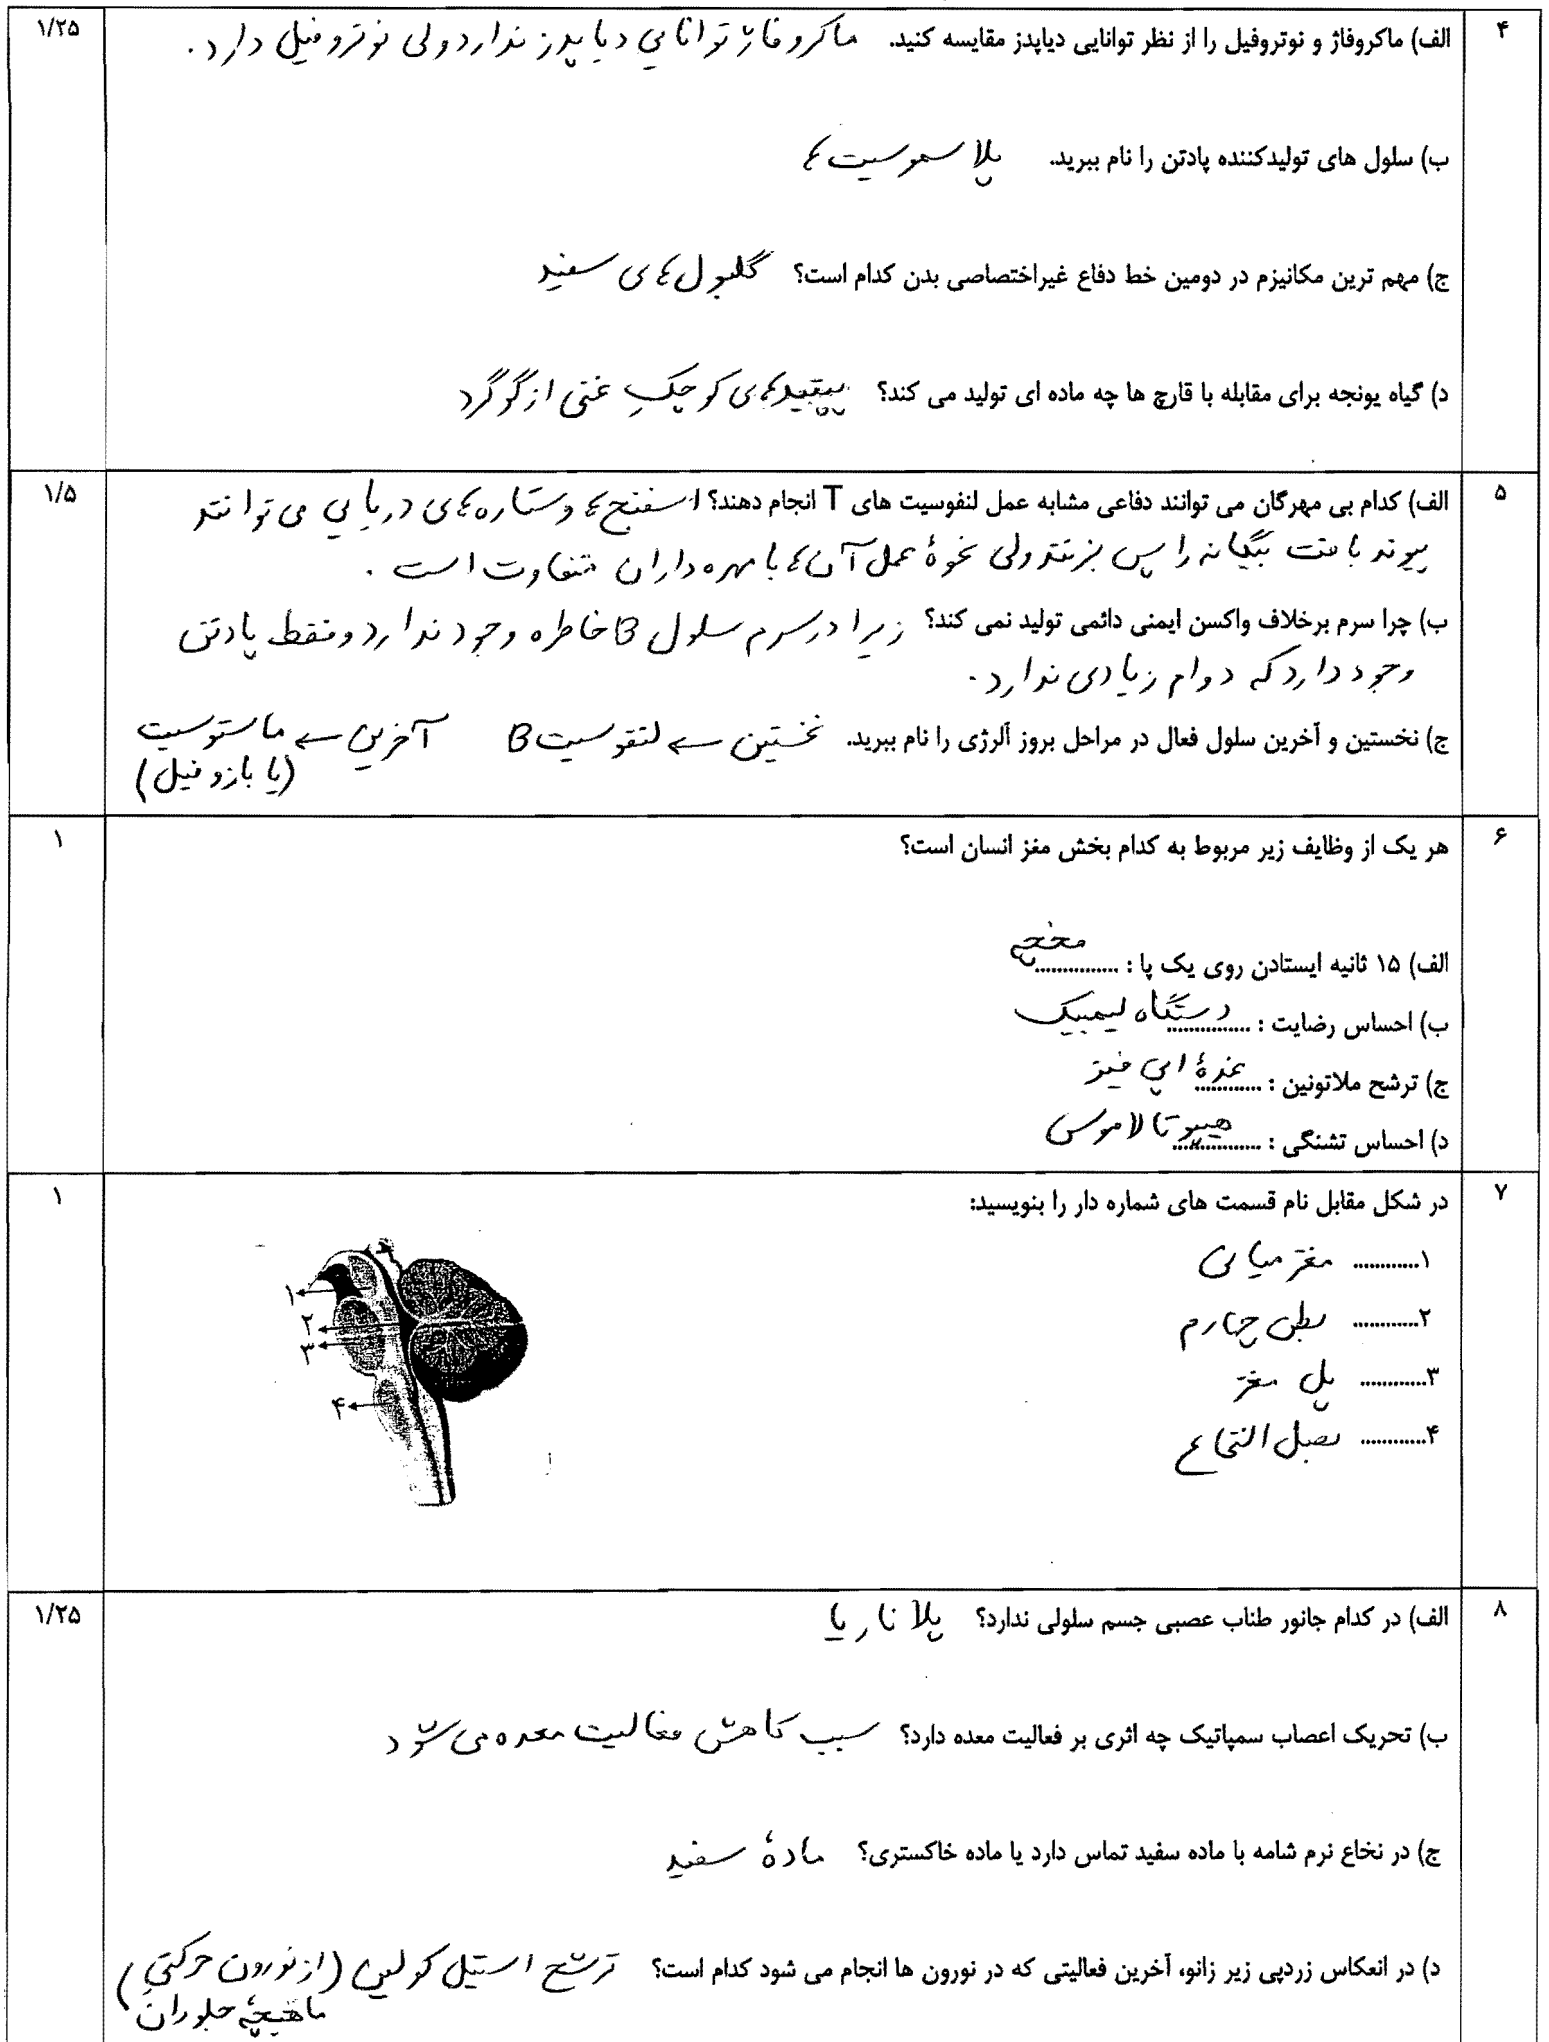 ۴
الف) ماکروفاژ و نوتروفیل را از نظر توانایی دیاپدز مقایسه کنید. ماکروفاژ توانایی دیاپدز ندارد ولی نوتروفیل دارد.
۱/۲۵
ب) سلول های تولیدکننده پادتن را نام ببرید. پلاسموسیت ها
ج) مهم ترین مکانیزم در دومین خط دفاع غیراختصاصی بدن کدام است؟ گلبول های سفید
د) گیاه یونجه برای مقابله با قارچ ها چه ماده ای تولید می کند؟ پپتیدهای کوچک غنی از گوگرد
۵
الف) کدام بی مهرگان می توانند دفاعی مشابه عمل لنفوسیت های T انجام دهند؟ اسفنج ها و ستاره های دریایی می توانند
۱/۵
پیوند بافت بیگانه را پس بزنند ولی نحوهٔ عمل آن ها با مهره داران متفاوت است.
ب) چرا سرم برخلاف واکسن ایمنی دائمی تولید نمی کند؟ زیرا در سرم سلول B خاطره وجود ندارد و فقط پادتن
وجود دارد که دوام زیادی ندارد.
ج) نخستین و آخرین سلول فعال در مراحل بروز آلرژی را نام ببرید. نخستین ← لنفوسیت B آخرین ← ماستوسیت
(یا بازوفیل)
۶
هر یک از وظایف زیر مربوط به کدام بخش مغز انسان است؟
۱
الف) ۱۵ ثانیه ایستادن روی یک پا : مخچه
ب) احساس رضایت : دستگاه لیمبیک
ج) ترشح ملاتونین : غدهٔ اپی فیز
د) احساس تشنگی : هیپوتالاموس
۷
در شکل مقابل نام قسمت های شماره دار را بنویسید:
۱
۱............ مغز میانی
۲............ بطن چهارم
۳............ پل مغز
۴............ بصل النخاع
۱
۲
۳
۴
۸
الف) در کدام جانور طناب عصبی جسم سلولی ندارد؟ پلاناریا
۱/۲۵
ب) تحریک اعصاب سمپاتیک چه اثری بر فعالیت معده دارد؟ سبب کاهش فعالیت معده می شود
ج) در نخاع نرم شامه با ماده سفید تماس دارد یا ماده خاکستری؟ مادهٔ سفید
د) در انعکاس زردپی زیر زانو، آخرین فعالیتی که در نورون ها انجام می شود کدام است؟ ترشح استیل کولین (از نورون حرکتی
ماهیچهٔ جلو ران)